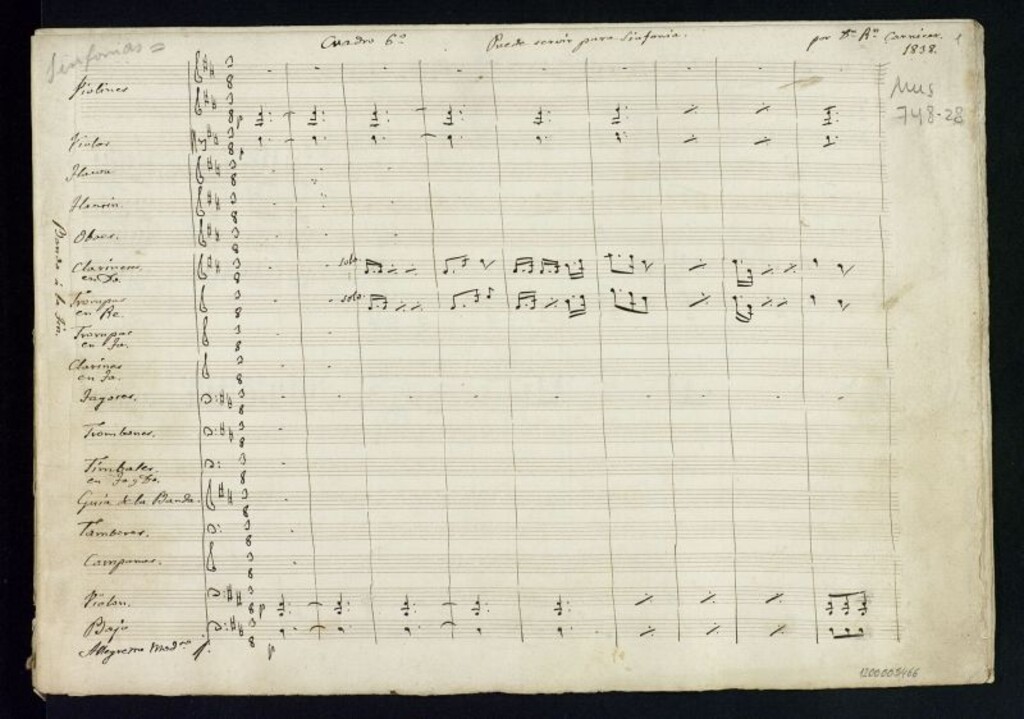 Sinfonias =
Cuadro 6º
Puede servir para Sinfonia.
por Dn Rn Carnicer. 1
1838.
Mus
748-28
Violines
Violas
Flauta
Flautin.
Oboes.
Clarinetes
en Do.
solo.
Trompas
en Re.
solo.
Trompas
en Fa.
Clarines
en Fa.
Fagotes.
Trombones.
Timbales.
en Fa y Do.
Guia de la Banda.
Tambores.
Campanas.
Violon.
Bajo
Allegretto Modto
Banda á la fin.
1200005466